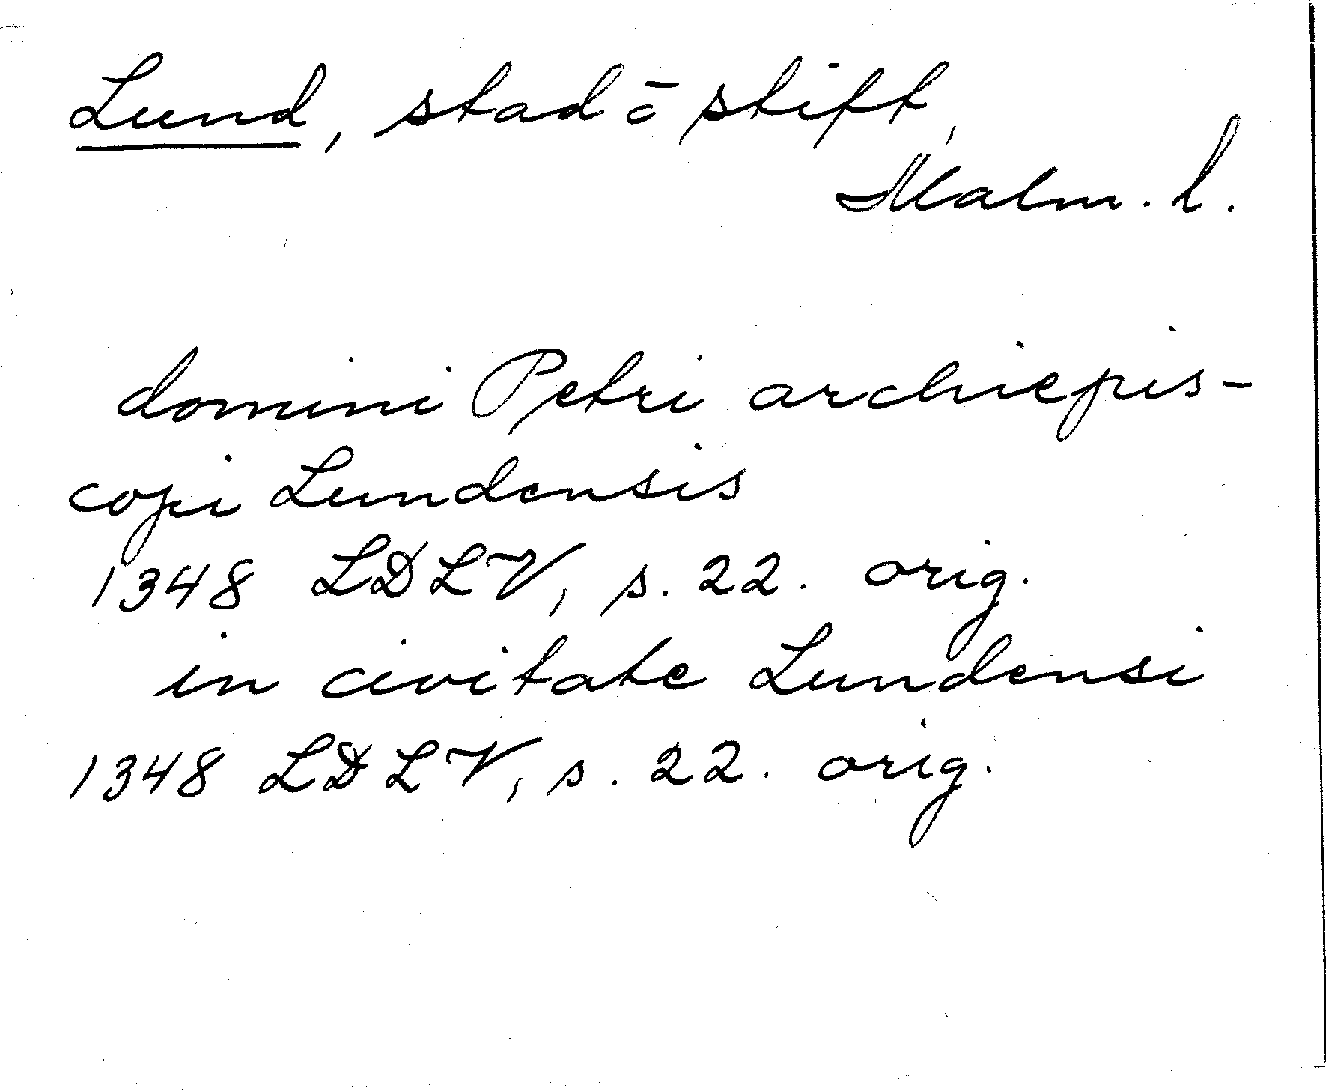 Lund, stad ō stift,
Malm. l.
domini Petri archiepis-
copi Lundensis
1348 LDLV, s. 22. orig.
in civitate Lundensi
1348 LDLV, s. 22. orig.